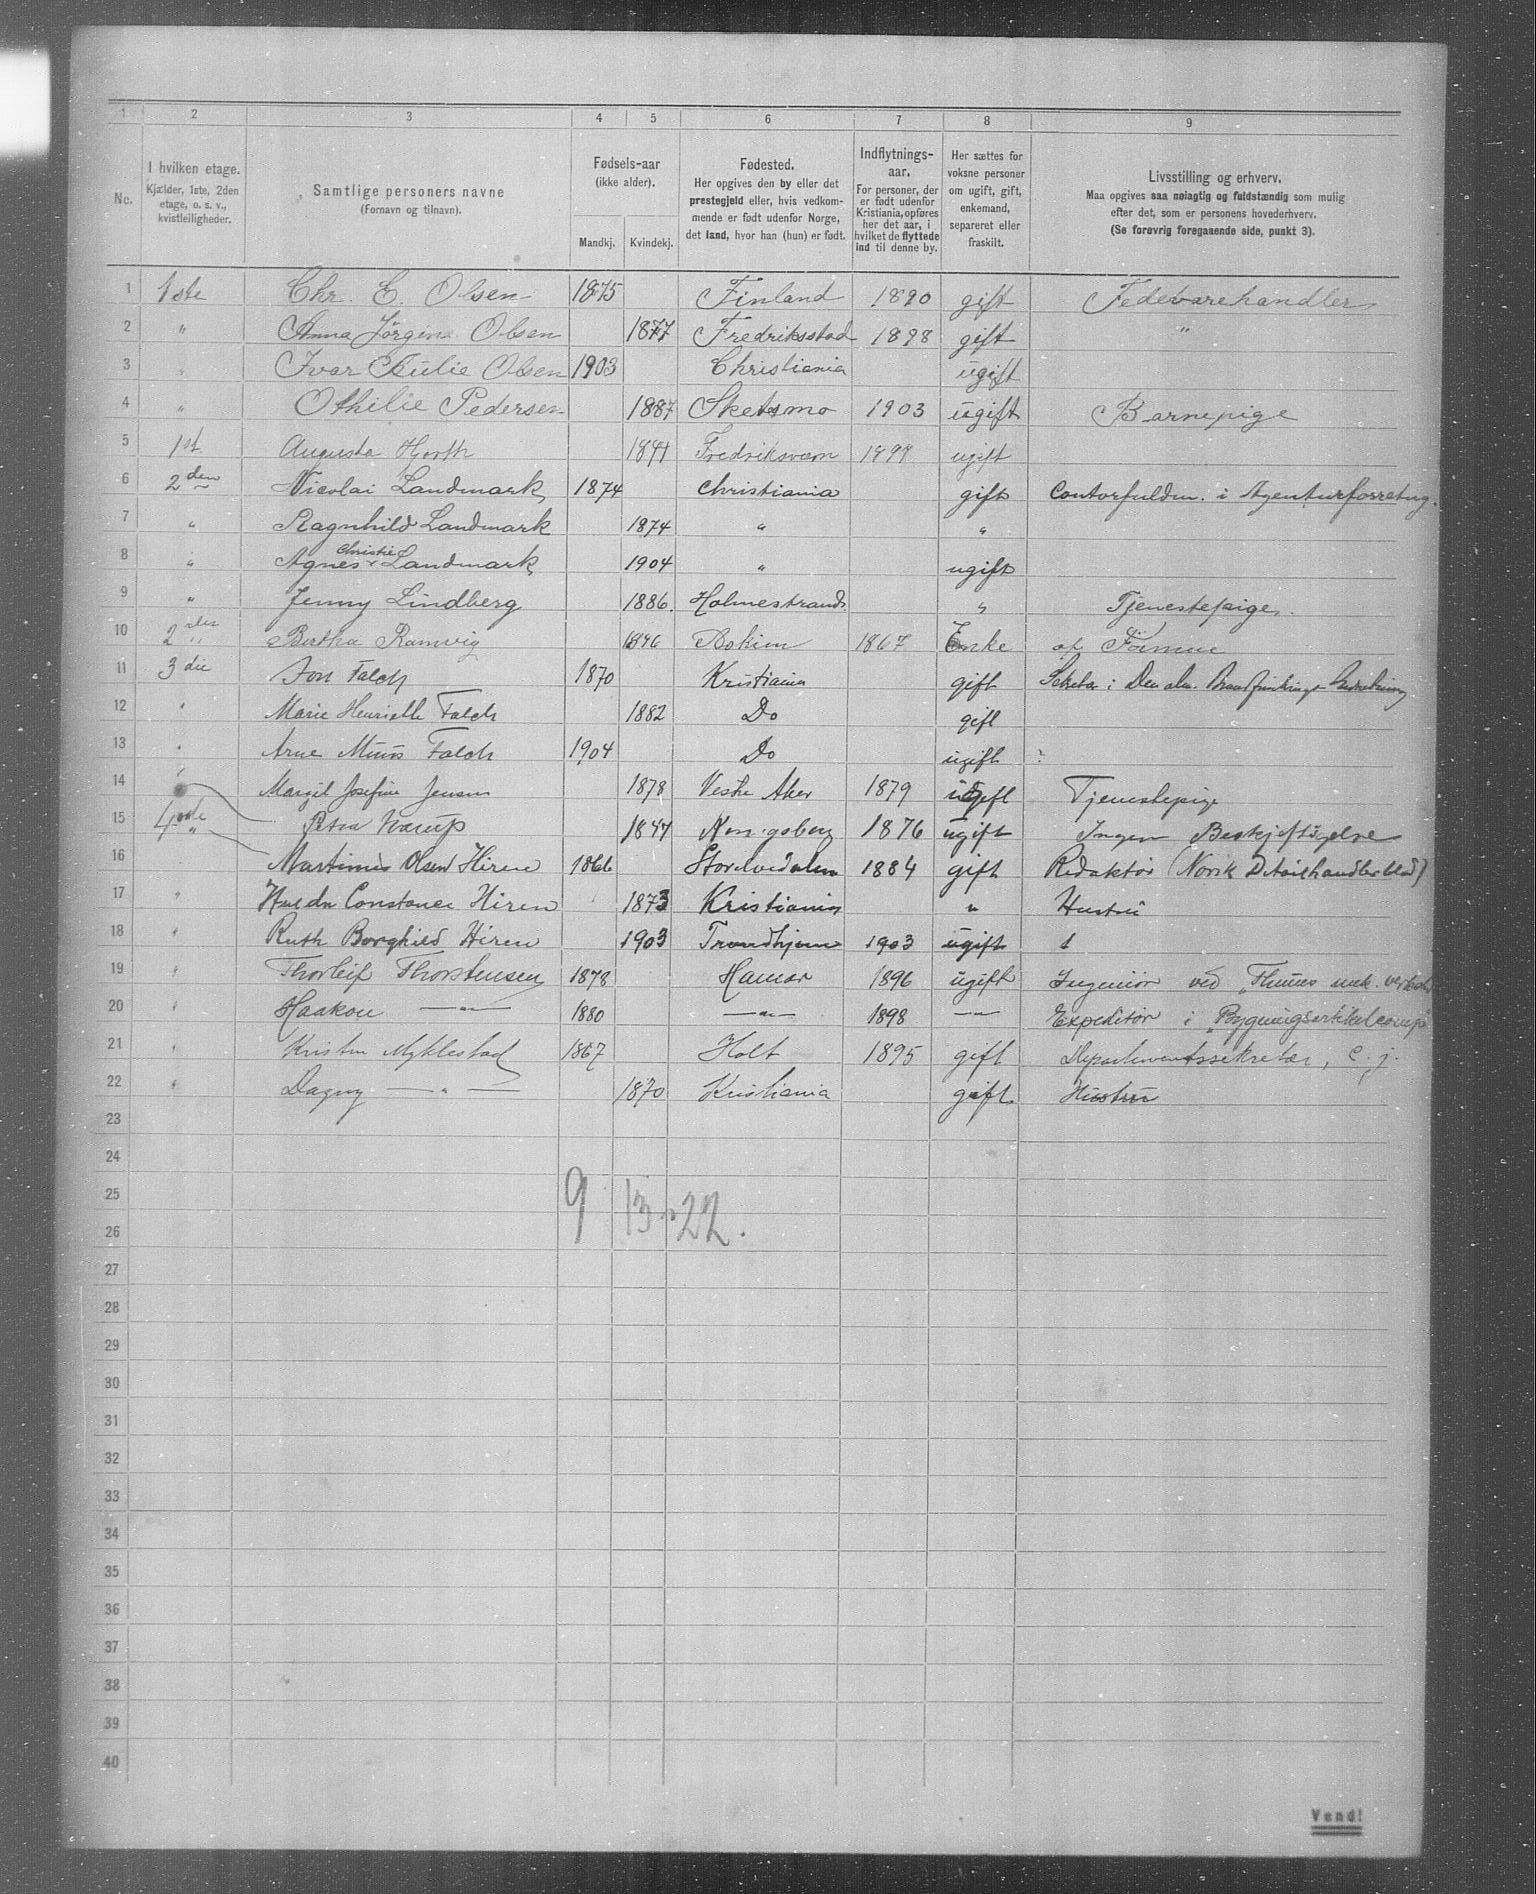 1 2 3 4 5 6 7 8 9
No. I hvilken etage. Kjælder, 1ste, 2den etage, o. s. v., kvistleiligheder.
Samtlige personers navne (Fornavn og tilnavn).
Fødsels-aar (ikke alder). Mandkj. Kvindekj.
Fødested. Her opgives den by eller det prestegjeld eller, hvis vedkommende er født udenfor Norge, det land, hvor han (hun) er født.
Indflytningsaar. For personer, der er født udenfor Kristiania, opføres her det aar, i hvilket de flyttede ind til denne by.
Her sættes for voksne personer om ugift, gift, enkemand, separeret eller fraskilt.
Livsstilling og erhverv. Maa opgives saa nøiagtig og fuldstændig som mulig efter det, som er personens hovederhverv. (Se forøvrig foregaaende side, punkt 3).
1 1ste Chr. E. Olsen 1875 Finland 1890 gift Fedevarehandler
2 " Anna Jörgine Olsen 1877 Fredriksstad 1898 gift "
3 " Ivar Olsen 1903 Christiania ugift
4 " Othilie Pedersen 1887 Sketsmo 1903 ugift Barnepige
5 1st Augusta Fredriksværn 1899 ugift
6 2den Nicolai Landmark 1874 Christiania gift Contorfuldm. i Agenturforretng.
7 " Ragnhild Landmark 1874 " "
8 " Agnes Christie Landmark 1904 " ugift
9 " Jenny Lindberg 1886. Holmestrand " Tjenestepige.
10 2den " Bertha Ramvig 1846 Askim 1867 Enke af Formue
11 3die Jon Falch 1870 Kristiania gift Sekretær i Den alm.
12 " Marie Henriette Falch 1882 Do gift
13 " Arne Muus Falch 1904 Do ugift
14 " Margit Josefine Jensen 1878 Vestre Aker 1879 ugift Tjenestepige
15 4de " Petra 1847 Kongsberg 1876 ugift Ingen Beskjeftigelse
16 Martinus Olsen Hiren 1866 Storelvedalen 1884 gift Redaktør (Norsk Detailhandlerblad)
17 " Hulda Constance Hiren 1873 Kristiania " Hustru
18 " Ruth Borghild Hiren 1903 Trondhjem 1903 ugift
19 " Thorleif Thorstensen 1878 Hamar 1896 ugift Ingeniör ved "Thunes mek. verksted
20 " Haakon —"— 1880 —"— 1898 —"— Expeditör i "Bygningsartikelcomp"
21 " Kristen Myklestad 1867 Holt 1895 gift Departementssekretær, c. j.
22 " Dagny —"— 1870 Kristiania gift Hustru
23
24
25
9 13 = 22.
26
27
28
29
30
31
32
33
34
35
36
37
38
39
40
Vend!